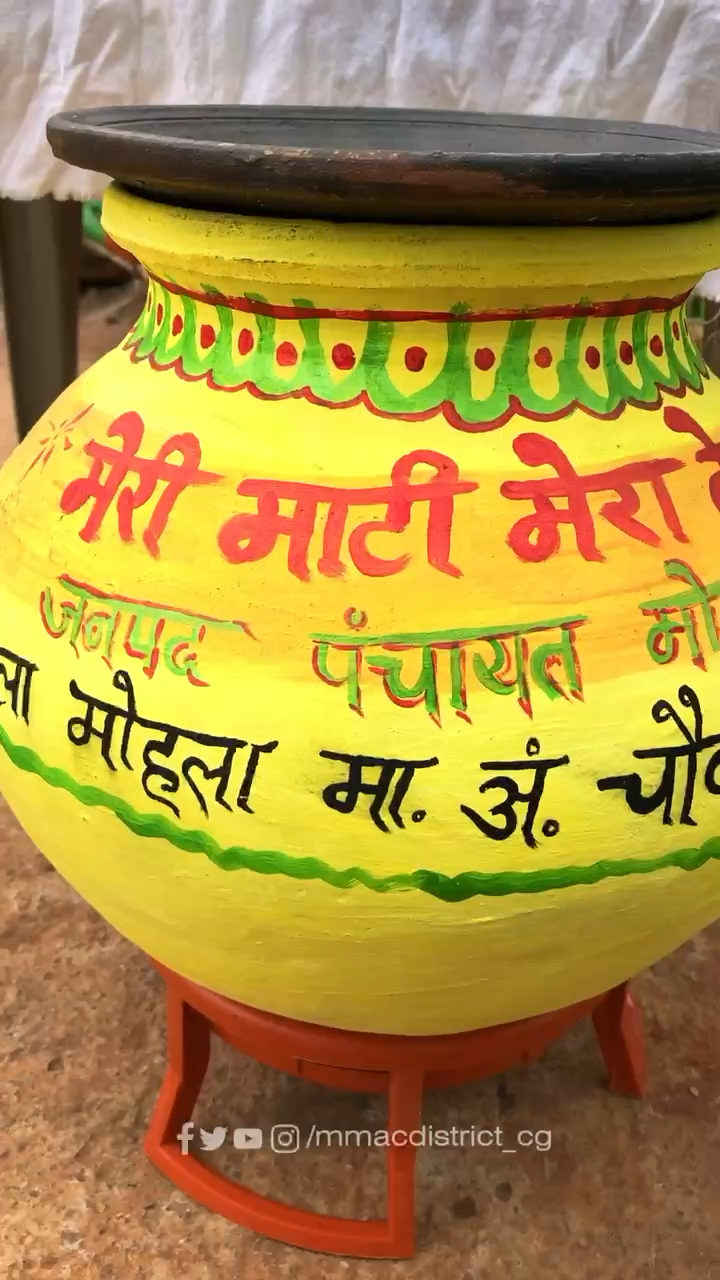 मेरी माटी मेरा
जनपद पंचायत मो
ला मोहला मा. अं. चौ
/mmacdistrict_cg